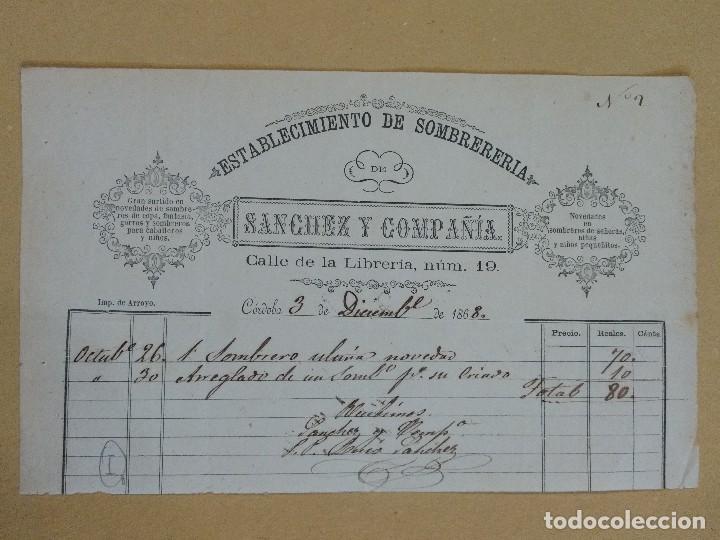 Nº 2
ESTABLECIMIENTO DE SOMBRERERIA
DE
SANCHEZ Y COMPAÑÍA.
Calle de la Librería, núm. 19.
Gran surtido en
novedades de sombre-
ros de copa, fantasía,
gorras y sombreros
para caballeros
y niños.
Novedades
en
sombreros de señoras,
niñas
y niños pequeñitos.
Imp. de Arroyo.
Córdoba 3 de Diciembe de 1868.
Precio. Reales. Cénts.
Octube 26. 1 Sombrero novedad 70.
" 30 Arreglado de un Sombo pa su Criado 10
Total 80.
Recibimos
Sanchez y Compa
Sanchez
1
todocoleccion